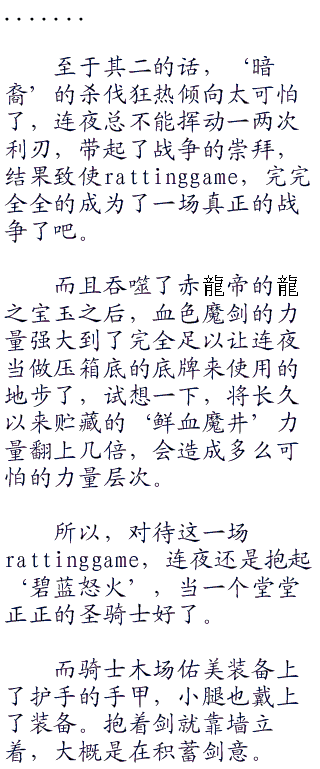 .......
至于其二的话，‘暗
裔’的杀伐狂热倾向太可怕
了，连夜总不能挥动一两次
利刃，带起了战争的崇拜，
结果致使rattinggame，完完
全全的成为了一场真正的战
争了吧。
而且吞噬了赤龍帝的龍
之宝玉之后，血色魔剑的力
量强大到了完全足以让连夜
当做压箱底的底牌来使用的
地步了，试想一下，将长久
以来贮藏的‘鲜血魔井’力
量翻上几倍，会造成多么可
怕的力量层次。
所以，对待这一场
rattinggame，连夜还是抱起
‘碧蓝怒火’，当一个堂堂
正正的圣骑士好了。
而骑士木场佑美装备上
了护手的手甲，小腿也戴上
了装备。抱着剑就靠墙立
着，大概是在积蓄剑意。